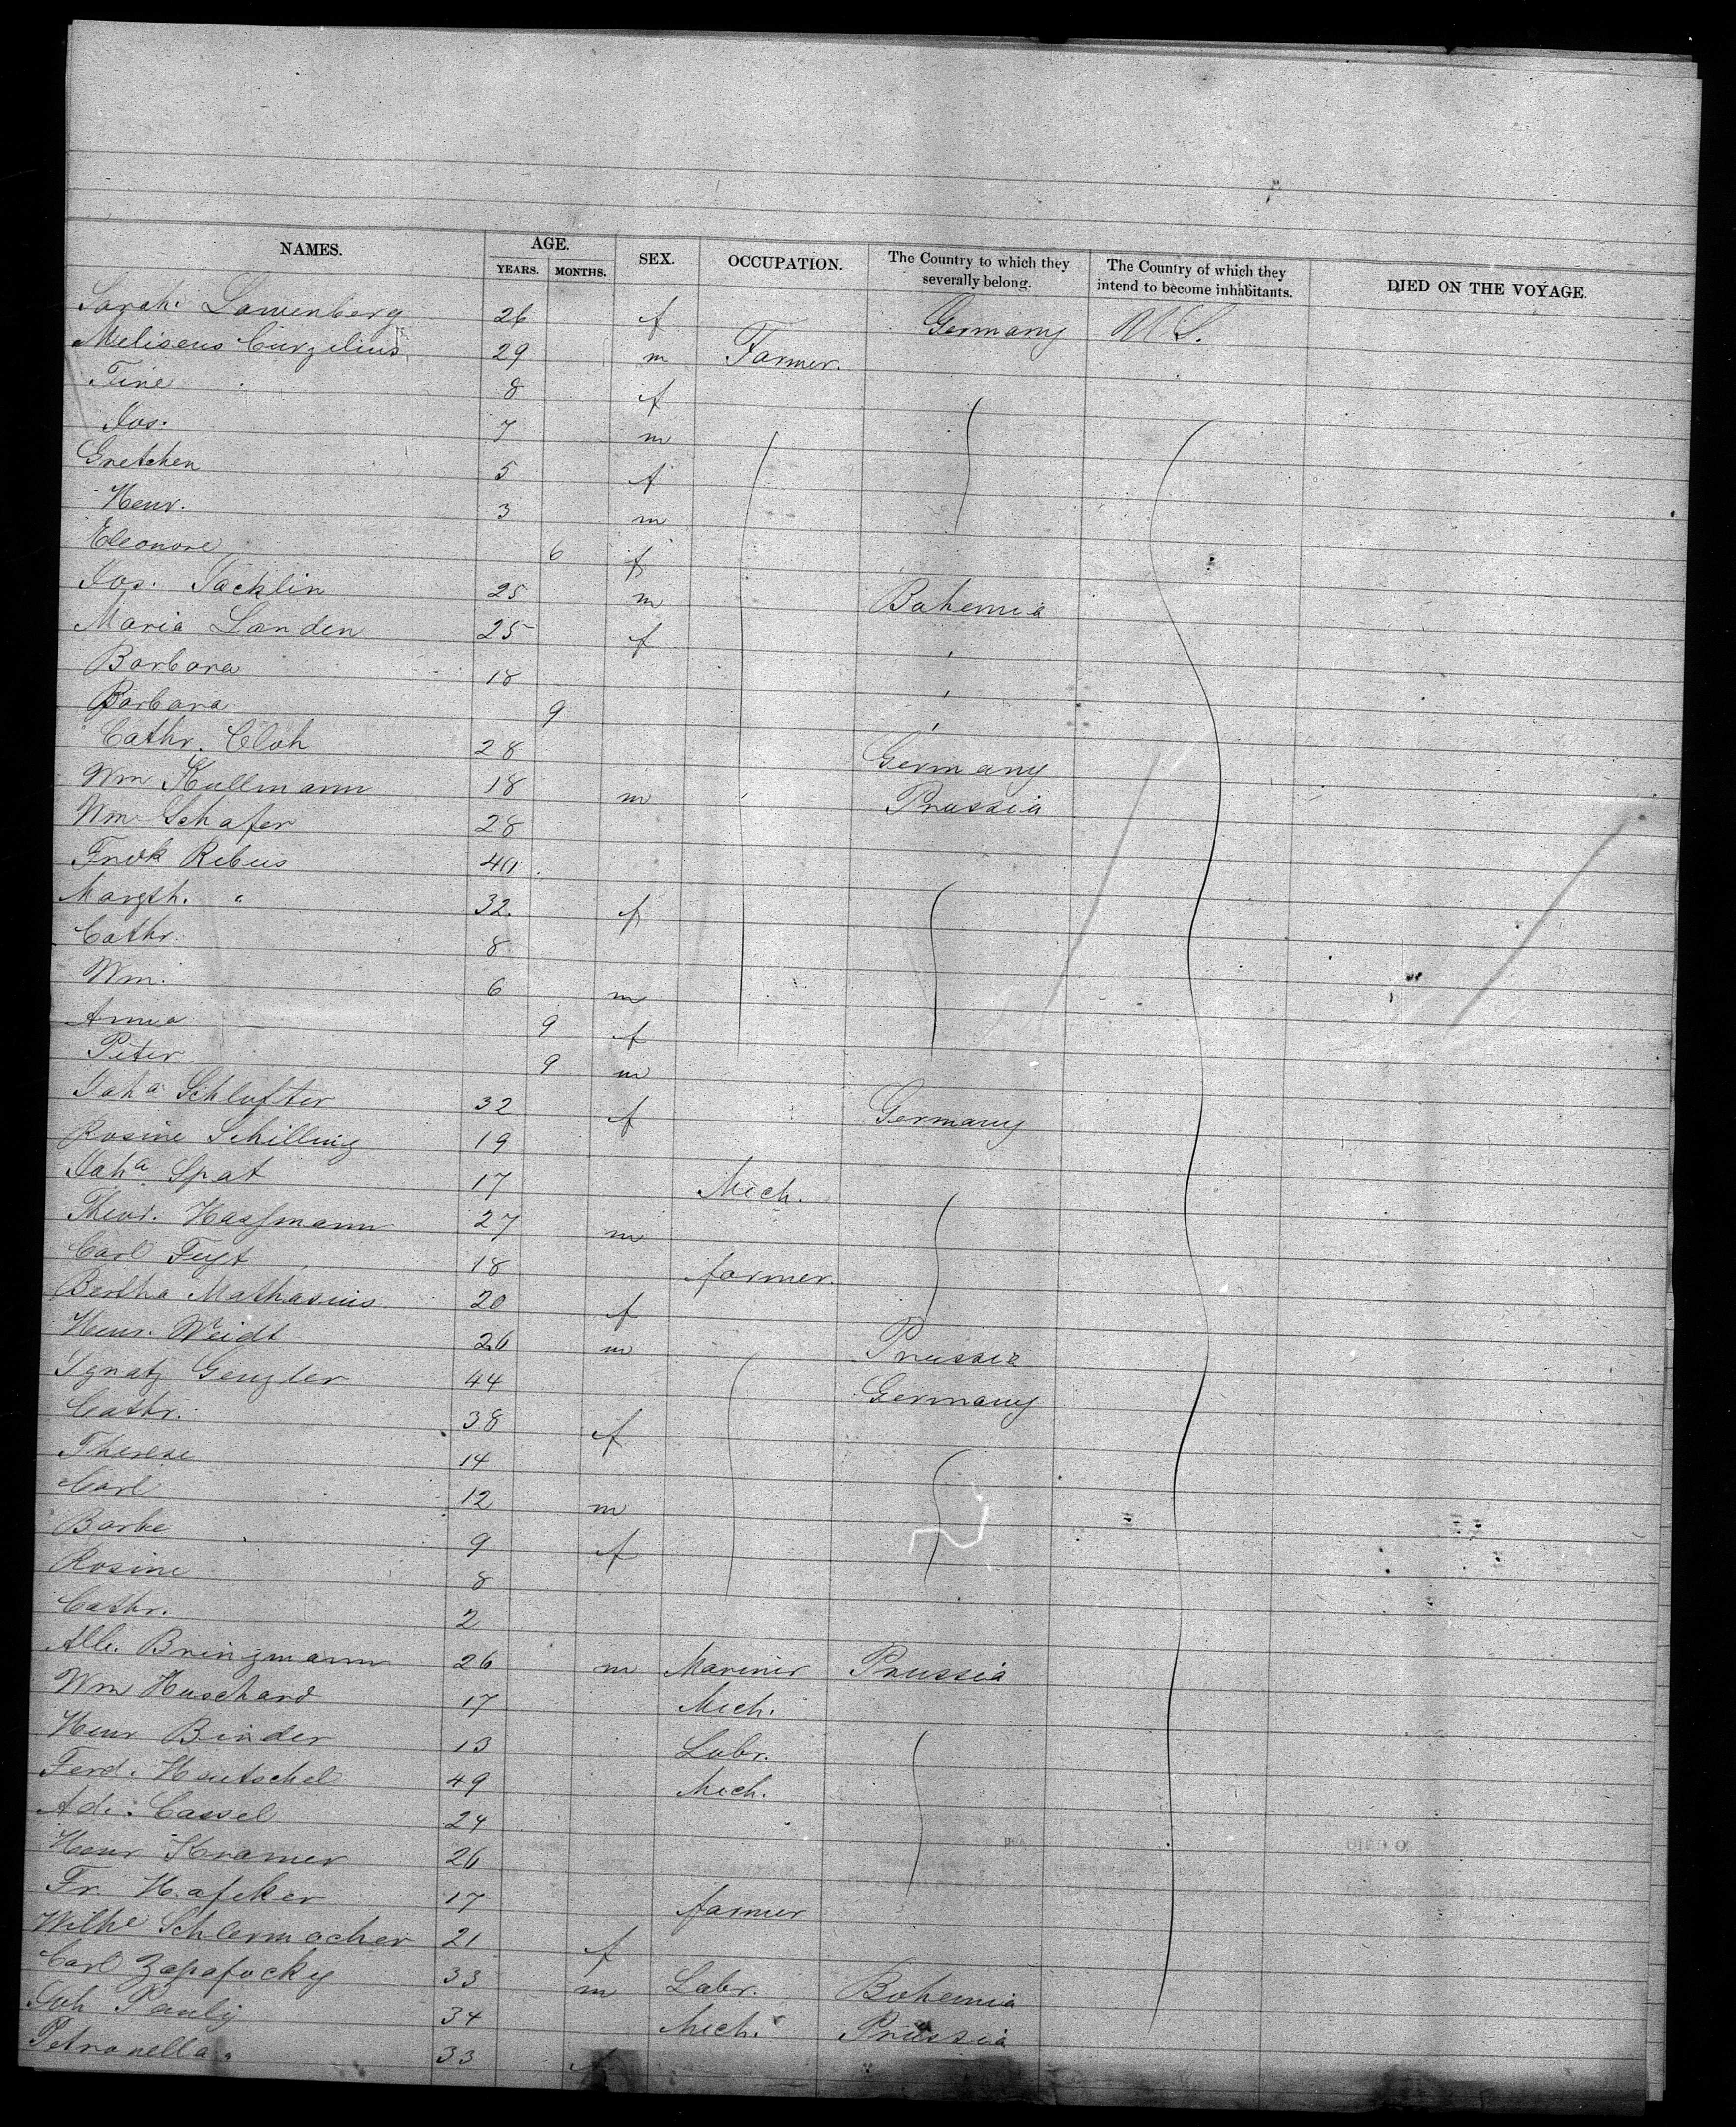 NAMES. AGE. SEX. OCCUPATION. The Country to which they severally belong. The Country of which they intend to become inhabitants. DIED ON THE VOYAGE.
YEARS. MONTHS.
Sarah Lowenberg 26 f Germany U S.
Meliseus Curzelius 29 m Farmer.
Tine 8 f
Jos. 7 m
Gretchen 5 f
Henr. 3 m
Eleonore 6 f
Jos. Jacklin 25 m Bohemia
Maria Landen 25 f "
Barbara 18 "
Barbara 9 "
Cathr. Cloh 28 Germany
Wm Kullmann 18 m Prussia
Wm Schafer 28
Fredk Rebus 40
Margth. " 32 f
Cathr. 8
Wm. 6 m
Anna 9 f
Peter 9 m
Joha Schlufter 32 f Germany
Rosine Schilling 19
Joha Spat 17 Mech.
Theod. Hassmann 27 m
Carl Fuyt 18 farmer.
Bertha Mathasius 20 f
Henr. Weidt 26 m Prussia
Ignatz Genzler 44 Germany
Cathr. 38 f
Therese 14
Carl 12 m
Barbe 9 f
Rosine 8
Cathr. 2
Alb. Bringmann 26 m Mariner Prussia
Wm Huschard 17 Mech.
Henr Binder 13 Labr.
Ferd. Hentschel 49 Mech.
Ad. Cassel 24
Henr Kramer 26
Fr. Hafeker 17 farmer
Wilhe Schlermacher 21 f
Carl Zapafocky 33 m Labr. Bohemia
Joh Pauly 34 Mech. Prussia
Petronella " 33 f